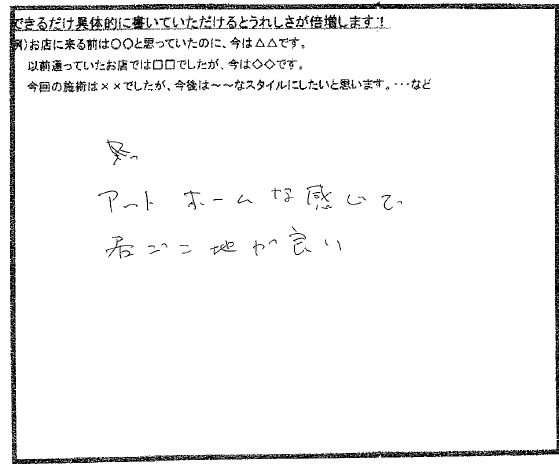 できるだけ具体的に書いていただけるとうれしさが倍増します！
例）お店に来る前は〇〇と思っていたのに、今は△△です。
以前通っていたお店では□□でしたが、今は◇◇です。
今回の施術は××でしたが、今後は～～なスタイルにしたいと思います。・・・など
アットホームな感じで
居ごこ地が良い